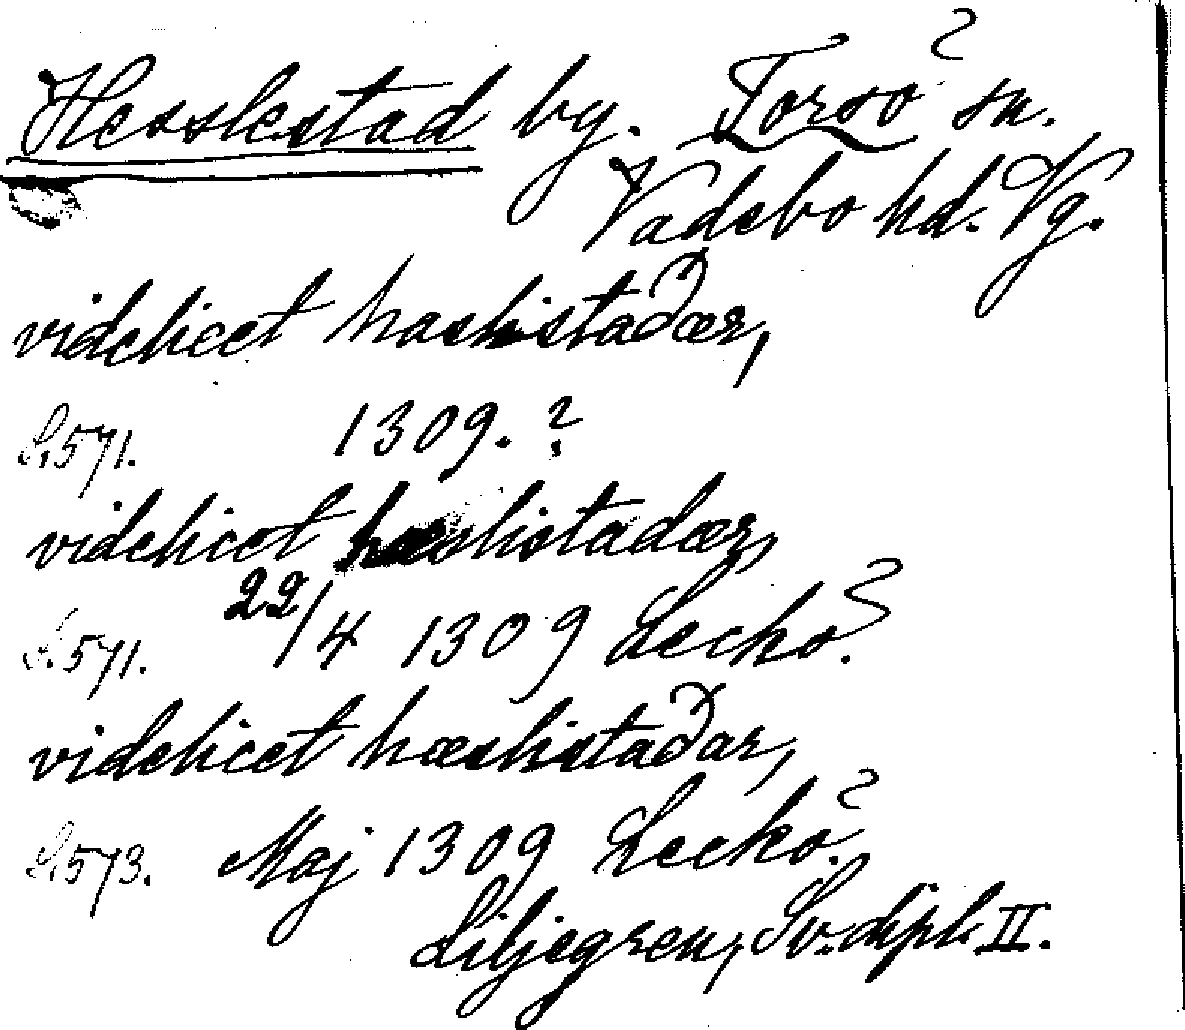 Hesslestad by. Torsö sn.
Vadsbo hd. Vg.
videlicet haslistaðær,
S. 571. 1309. ?
videlicet hæslistadær,
S. 571. 22/4 1309 Leckö.
videlicet hæslistaðar,
S. 573. Maj 1309 Leckö.
Liljegren, Sv. dipl. II.